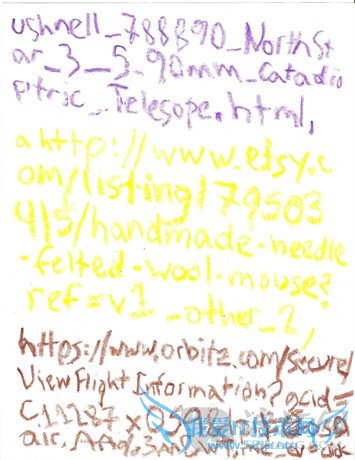 ushnell_788890_NorthSt
ar_3_5_90mm_Catadio
ptric_Telesope.html,
a http://www.etsy.c
om/listing/179503
415/handmade-needle
-felted-wool-mouse?
ref=v1_other_2,
https://www.orbitz.com/secure/
ViewFlightInformation?gcid=
C11287x
air.AA%3